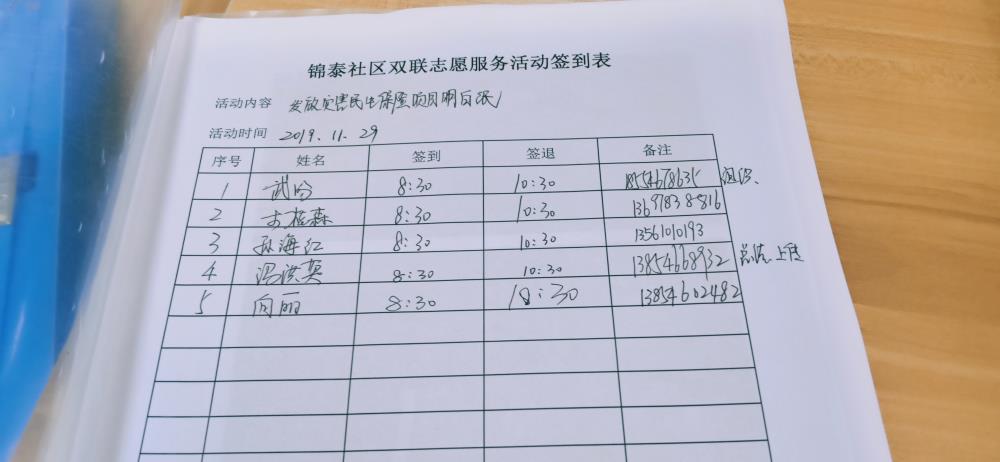 锦泰社区双联志愿服务活动签到表
活动内容 发放灾害民生保险项目明白纸
活动时间 2019.11.29
序号 姓名 签到 签退 备注
1 武 8:30 10:30
2 森 8:30 10:30 13697838816
3 孙海红 8:30 10:30 13561010193
4 冯洪英 8:30 10:30 13854668932 总结、上传
5 向丽 8:30 10:30 13854602482